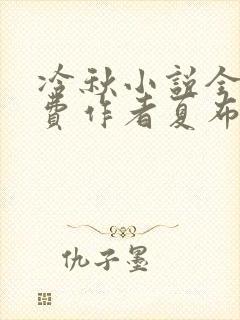 冷秋小説全
費作者夏布
仇子墨